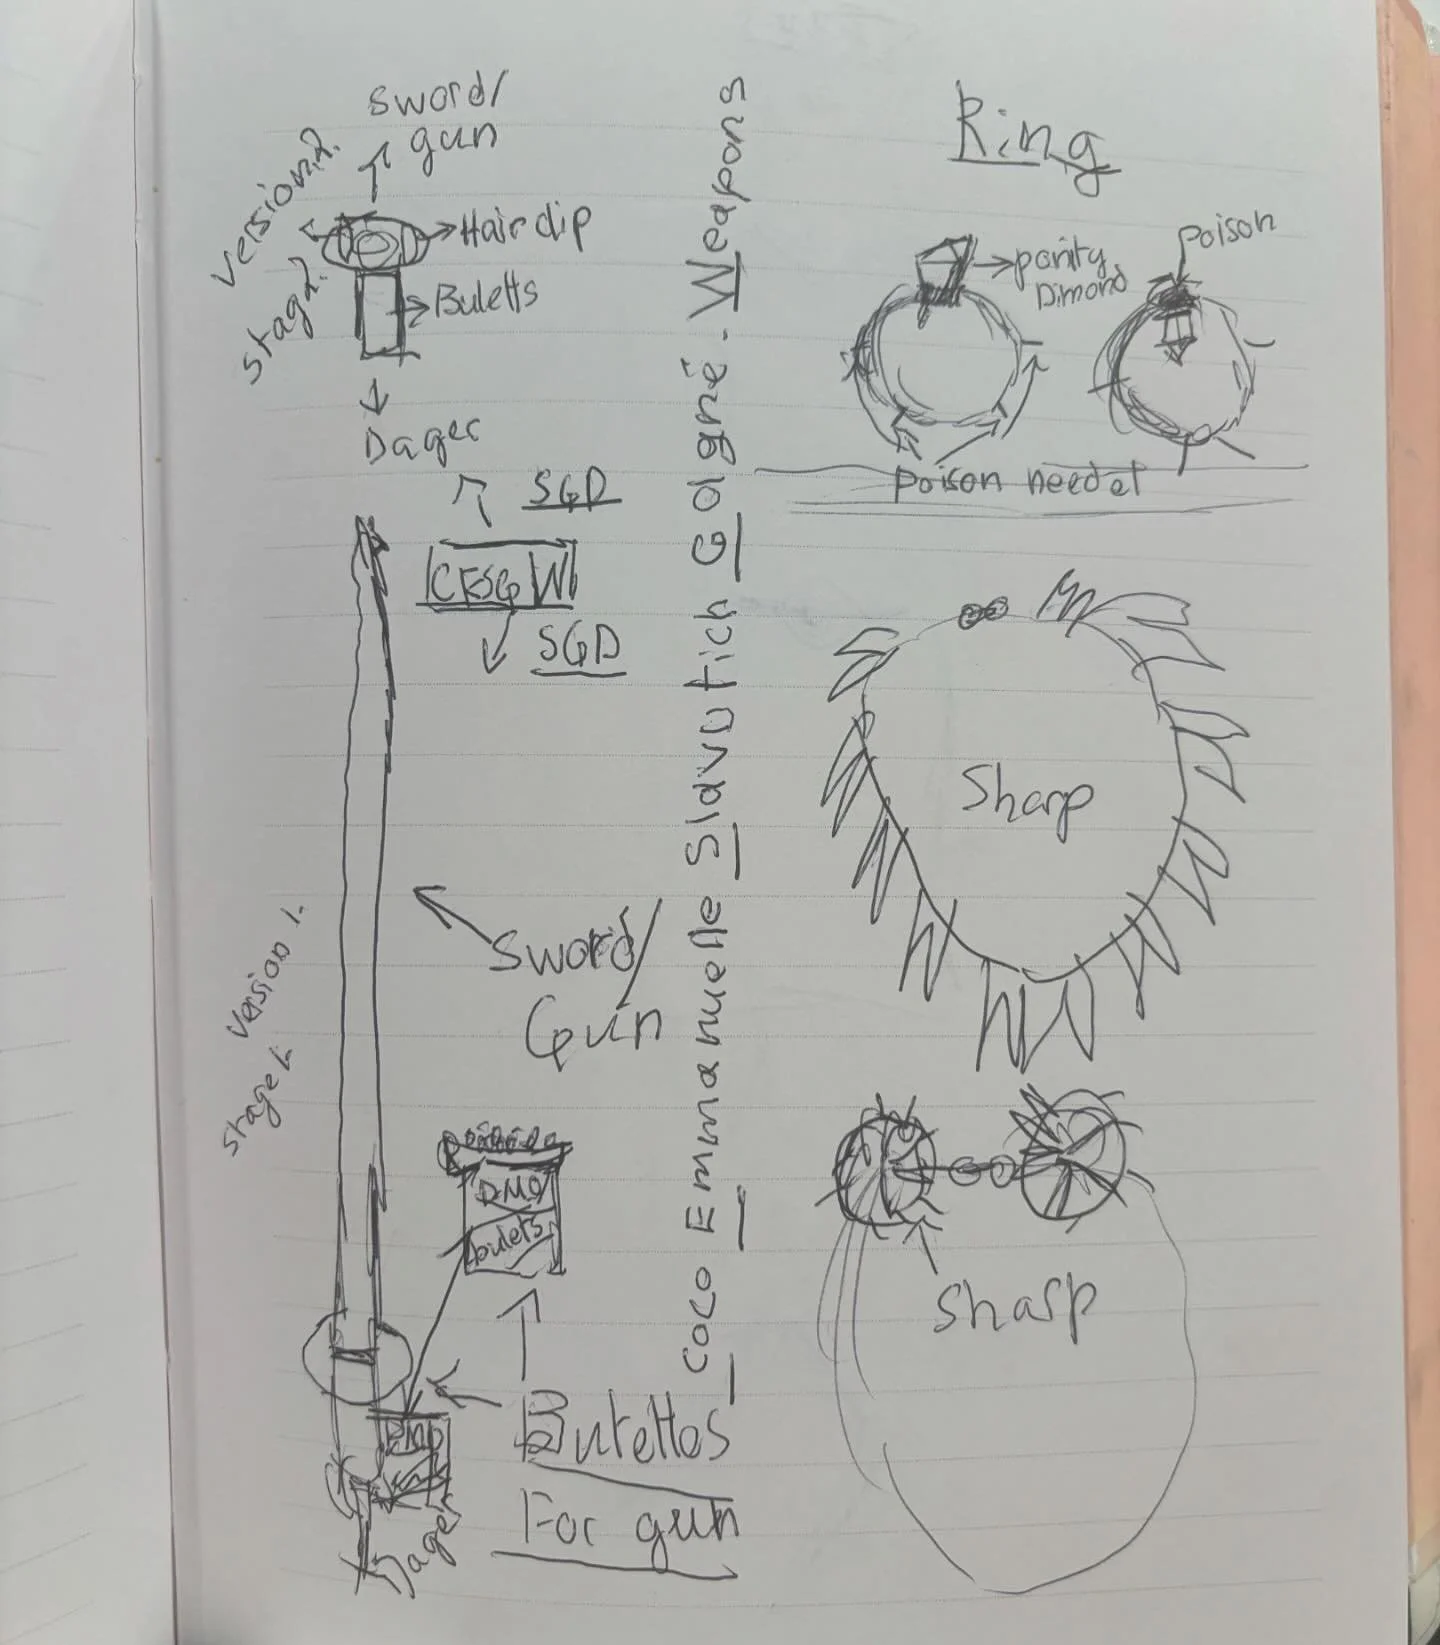 Sword/
gun
Version.2.
Stag 2.
Hair clip
Buletts
Dager
SGD
CESG W
SGD
Version 1.
Stage 1.
Sword/
Gun
DMO
bulets
Bulettos
For gun
Dager
Coco Emmanuelle Slavutich Gagné - Weapons
Ring
Poison
Dimond
Poison needel
Sharp
Sharp